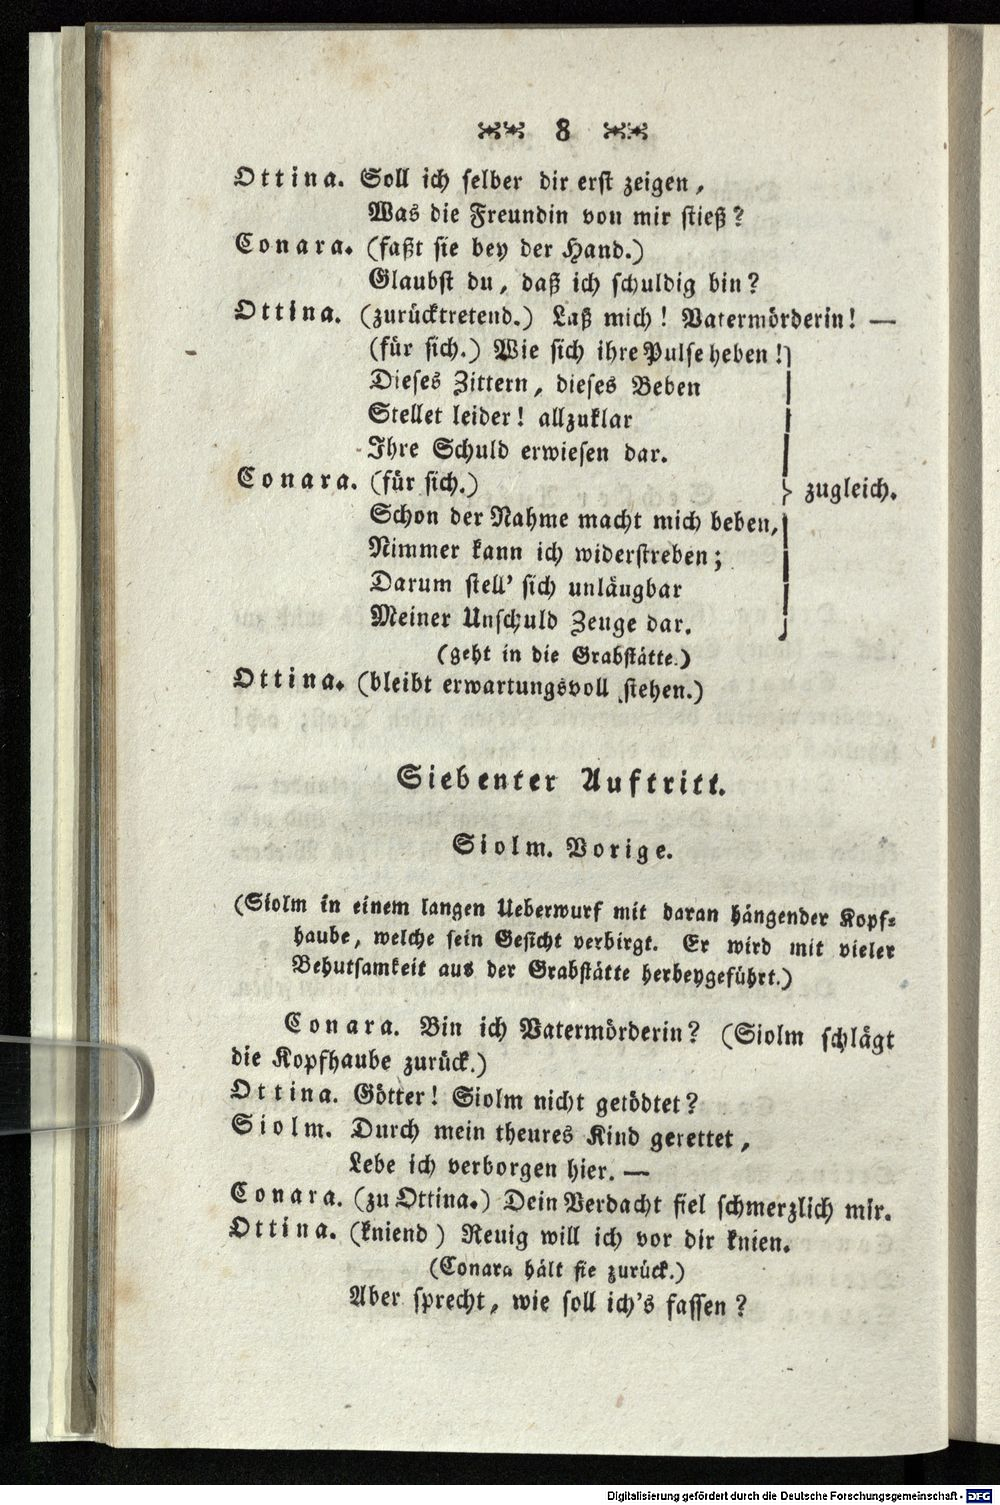 8
Ottina. Soll ich selber dir erst zeigen,
Was die Freundin von mir stieß?
Conara. (faßt sie bey der Hand.)
Glaubst du, daß ich schuldig bin?
Ottina. (zurücktretend.) Laß mich! Vatermörderin! —
(für sich.) Wie sich ihre Pulse heben!
Dieses Zittern, dieses Beben
Stellet leider! allzuklar
Ihre Schuld erwiesen dar.
Conara. (für sich.)
zugleich.
Schon der Nahme macht mich beben,
Nimmer kann ich widerstreben;
Darum stell' sich unläugbar
Meiner Unschuld Zeuge dar.
(geht in die Grabstätte.)
Ottina. (bleibt erwartungsvoll stehen.)
Siebenter Auftritt.
Siolm. Vorige.
(Siolm in einem langen Ueberwurf mit daran hängender Kopf-
haube, welche sein Gesicht verbirgt. Er wird mit vieler
Behutsamkeit aus der Grabstätte herbeygeführt.)
Conara. Bin ich Vatermörderin? (Siolm schlägt
die Kopfhaube zurück.)
Ottina. Götter! Siolm nicht getödtet?
Siolm. Durch mein theures Kind gerettet,
Lebe ich verborgen hier. —
Conara. (zu Ottina.) Dein Verdacht fiel schmerzlich mir.
Ottina. (kniend) Reuig will ich vor dir knien.
(Conara hält sie zurück.)
Aber sprecht, wie soll ich's fassen?
Digitalisierung gefördert durch die Deutsche Forschungsgemeinschaft - DFG